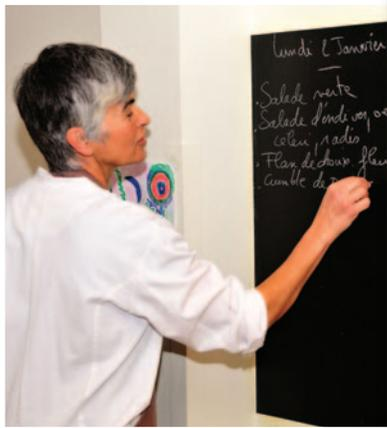 lundi 2 Janvier
. Salade verte
. Salade d'endives,
céleri, radis
. Flan de choux fleu
. Cumble de